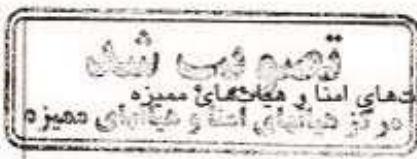 تصویب شد
هیأتهای امنا و هیأتهای ممیزه
مرکز هیأتهای امنا و هیأتهای ممیزه